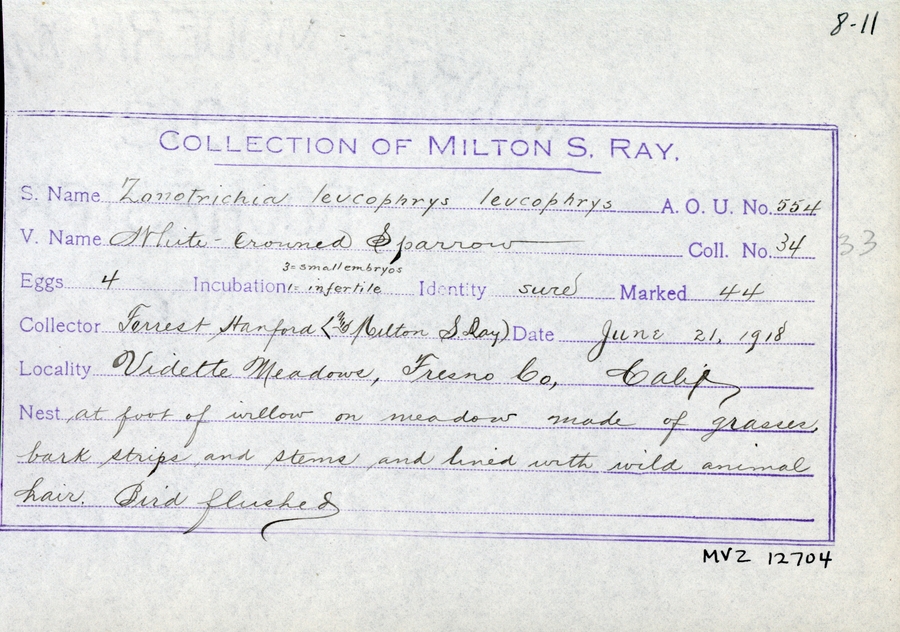 8-11
COLLECTION OF MILTON S. RAY.
S. Name Zonotrichia leucophrys leucophrys A. O. U. No. 554
V. Name White-Crowned Sparrow Coll. No. 34 33
3=small embryos
Eggs 4 Incubation 1= infertile Identity sure Marked 44
Collector Forrest Hanford ( Milton S Ray) Date June 21, 1918
Locality Vidette Meadows, Fresno Co, Calif
Nest at foot of willow on meadow made of grasses,
bark strips and stems and lined with wild animal
hair. Bird flushed
MVZ 12704